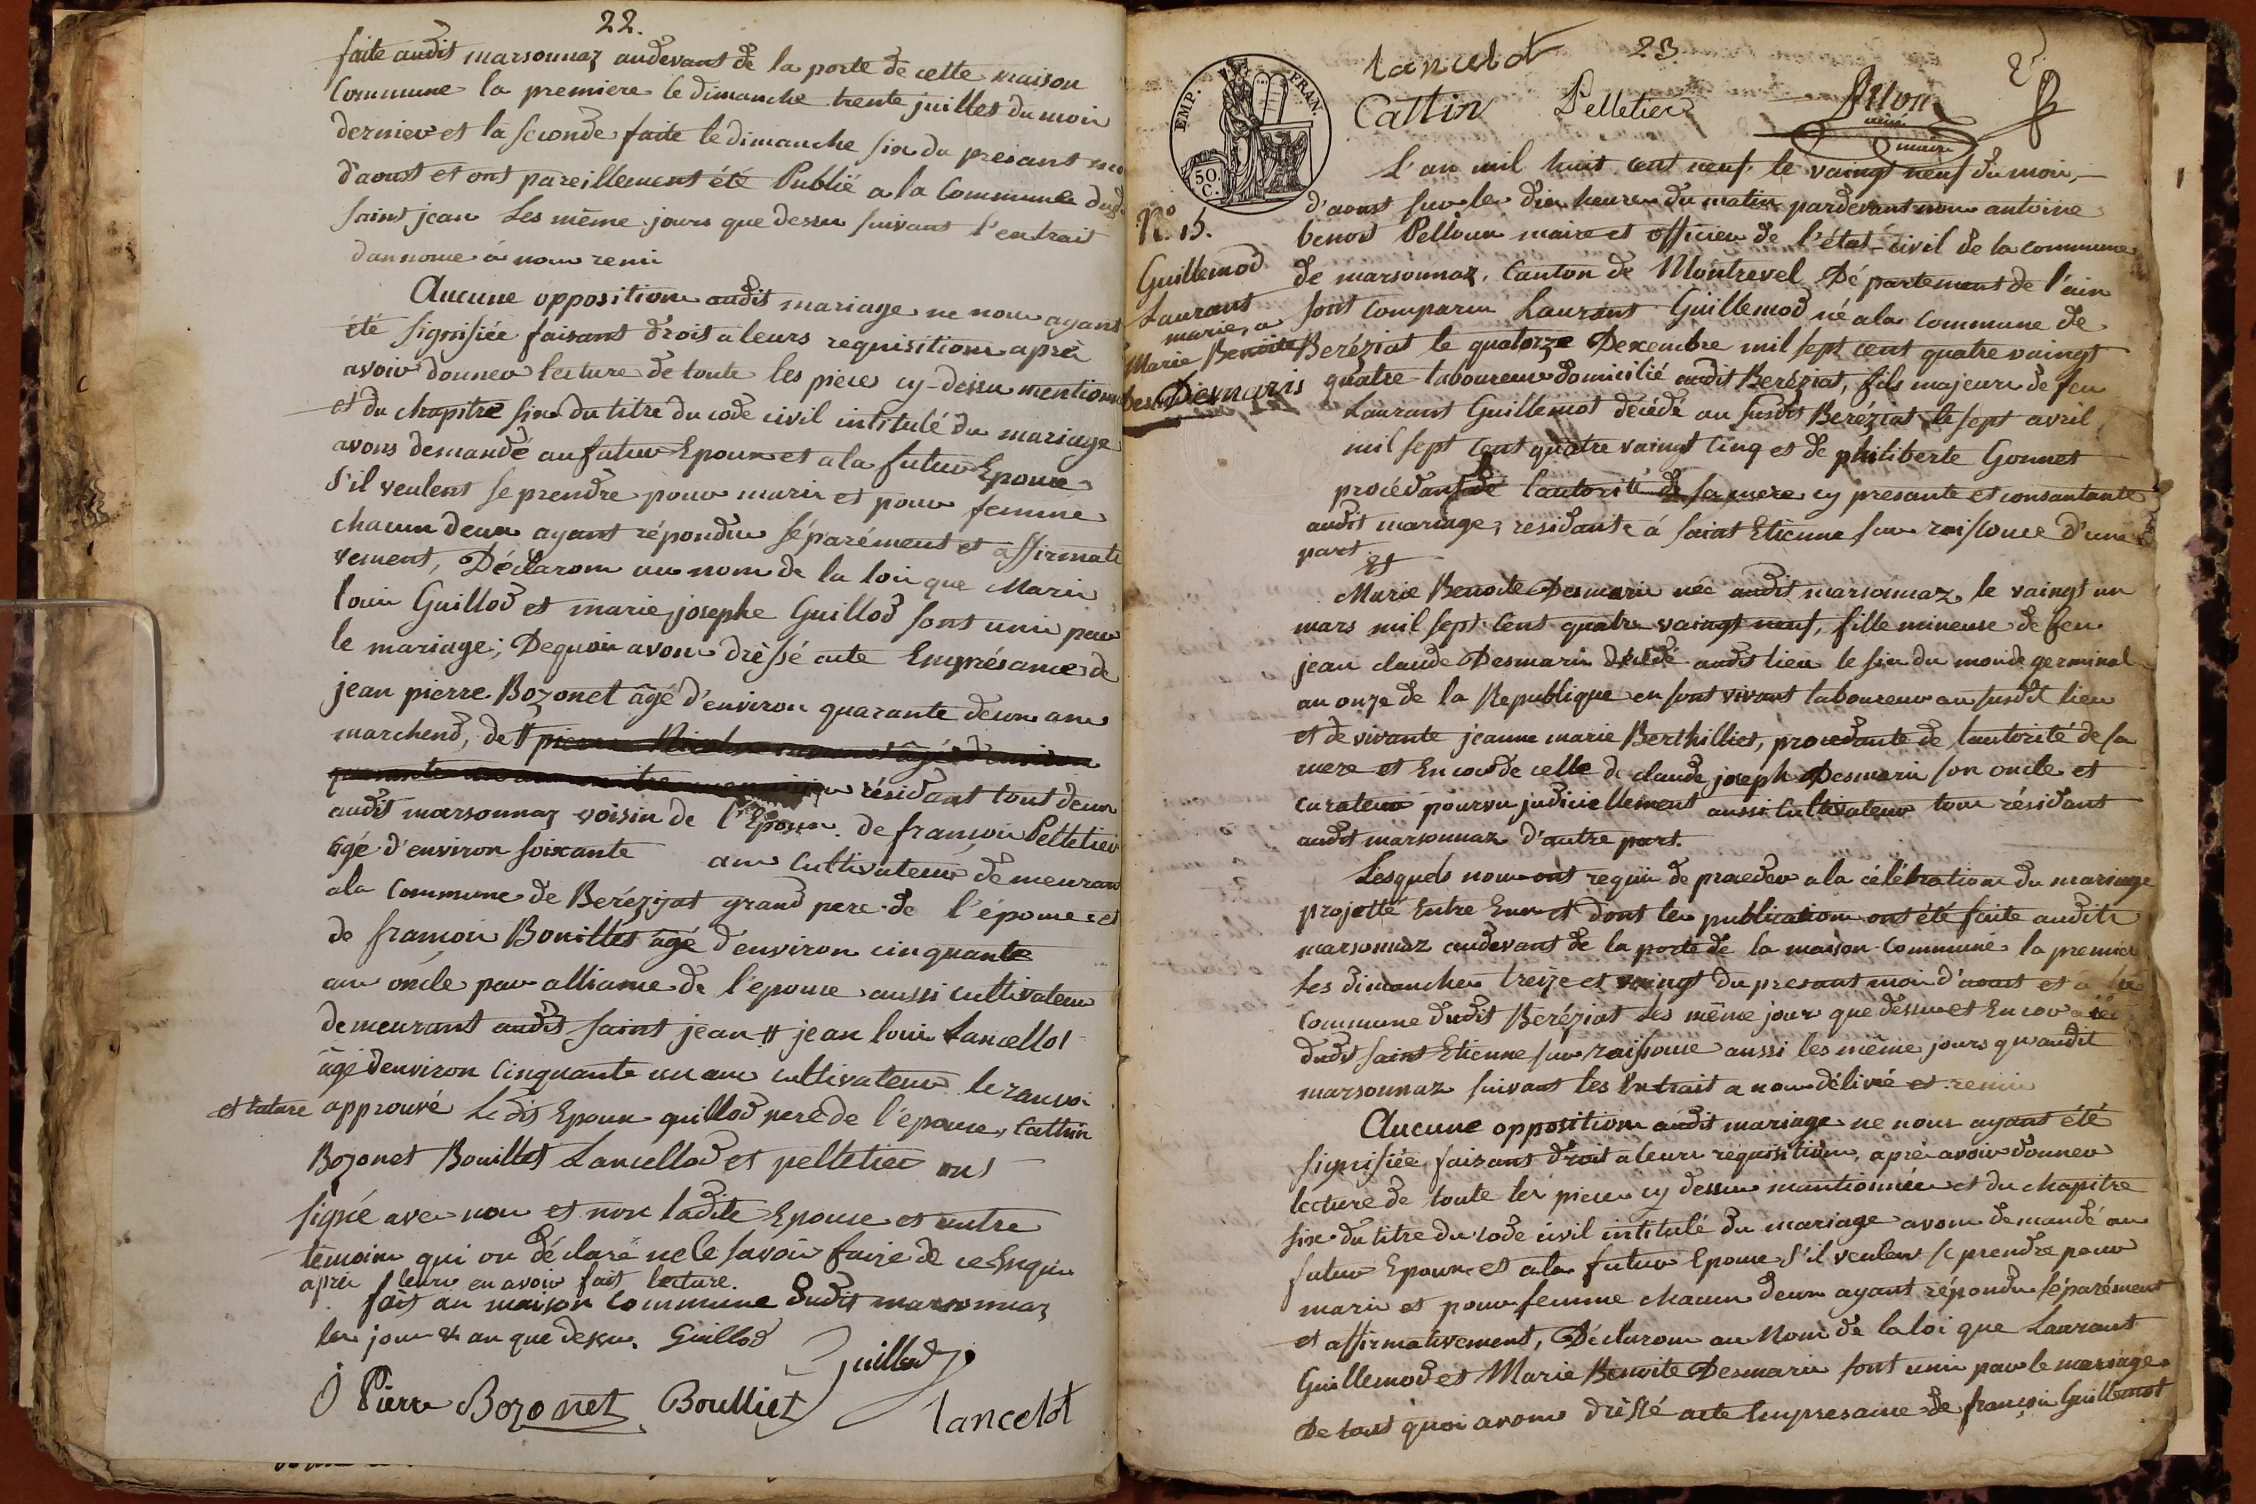 22.
faite audit marsonnaz audevant de la porte de cette maison
Commune la premiere le dimanche trente juillet du mois
dernier et la seconde faite le dimanche six du presant
d'aoust et ont pareillement été Publié a la Commune dudit
saint jean Les même jours que dessus suivant l'extrait
a nous remis
Aucune opposition audit mariage ne nous ayant
été signifiée faisant droit a leurs requisitions après
avoir donner lecture de toute les pieces cy-dessus mentionn
et du chapitre six du titre du code civil intitulé du mariage
avons demandé au futur Epoux et a la futur Epouse
s'il veulent se prendre pour marie et pour femme
chacun deux ayant répondu séparément et affirmati
vement, Déclarons au nom de la loi que Marie
louis Guillod et marie josephe Guillod sont unie par
le mariage; Dequoi avons dréssé acte Enprésance de
jean pierre Bozonet âgé d'environ quarante deux ans
marchend, de # pierre
résidant tout deux
audit marsonnaz voisin de l'Epoux. de françois Pelletier
âgé d'environ soixante ans Cultivateur demeurant
a la Commune de Berézyat grand pere de l'épouse et
de françois Bouillet âgé d'environ cinquante
ans oncle par alliance de l'epouse aussi cultivateur
demeurant audit saint jean # jean louis Lancellot
âgé denviron Cinquante un ans cultivateur le ranvoi
et rature approuvé Le dit Epoux guillod pere de l'épouse, Cattin
Bozonet Bouillet Lancellod et pelletier ont
signé avec nous et non ladite Epouse et autre
temoins qui on déclaré ne le savoir faire de ce Enquis
après leur en avoir fait lecture.
fait au maison Commune dudit marsonnaz
les jour & an que dessus. Guillod
Guillod
J Pierre Bozonet Boulliet
lancelot
lancelot 23.
Cattin Pelletier
maire
EMP. FRAN.
50. C.
L'an mil huit cent neuf le vaingt neuf du mois
d'aoust sur les dix heures du matin pardevant nous antoine
benoit Pelloux maire et officier de l'état-civil de la commune
de marsonnaz, Canton de Montrevel Département de l'ain
sont comparus Laurant Guillemod né a la Commune de
Beréziat le quatorze Dexembre mil sept cent quatre vaingt
quatre laboureur domicilié audit Beréziat, fils majeure de feu
Laurant Guillemot décédé au susdit Beréziat le sept avril
mil sept Cent quatre vaingt Cinq et de philiberte Gonnet
procédant de l'autorité de sa mere cy presante et consantante
audit mariage; residante à saint Etienne sur raissouce d'une
part
et
Marie Benoite Desmaris née audit marsonnaz le vaingt un
mars mil sept Cent quatre vaingt neuf, fille mineuse de feu
jean claude Desmaris décédé audit lieu le six du mois de germinal
an onze de la Republique en sont vivant laboureur au susdit lieu
et de vivante jeanne marie Berthilliet, procedante de l'autorité de sa
mere et Encor de celle de claude joseph Desmaris son oncle et
curateur pourvu judiciellement aussi Cultivateur tous résidant
audit marsonnaz d'autre part.
Lesquels nous ont requis de proceder a la célébration du mariage
projetté Entre Eux et dont les publication ont été faite audit
marsonnaz audevant de la porte de la maison Commune la premier
les dimanches treize et vaingt du presant mois d'aoust et a la
Commune dudit Beréziat Les même jour que dessus et Encor a
dudit saint Etienne sur raissouce aussi les même jours qu'audit
marsonnaz suivant les Extrait a nous délivré et remis
Aucune opposition audit mariage ne nous ayant été
signifiée, faisant droit a leurs requisition, après avoir donner
lecture de toute les pieces cy dessus mantionnées et du chapitre
six du titre du code civil intitulé du mariage avons demandé au
futur Epoux et a la futur Epouse s'il veulent se prendre pour
marie et pour femme chacun deux ayant répondu séparément
et affirmativement, Déclarons au Nom de la loi que Laurant
Guillemod et Marie Benoite Desmaris sont unie par le mariage.
De tout quoi avons dréssé acte Enpresance de françois Guillemot
N.° 15.
Guillemod
Laurant
marie, a
Marie Benoite
Desmaris